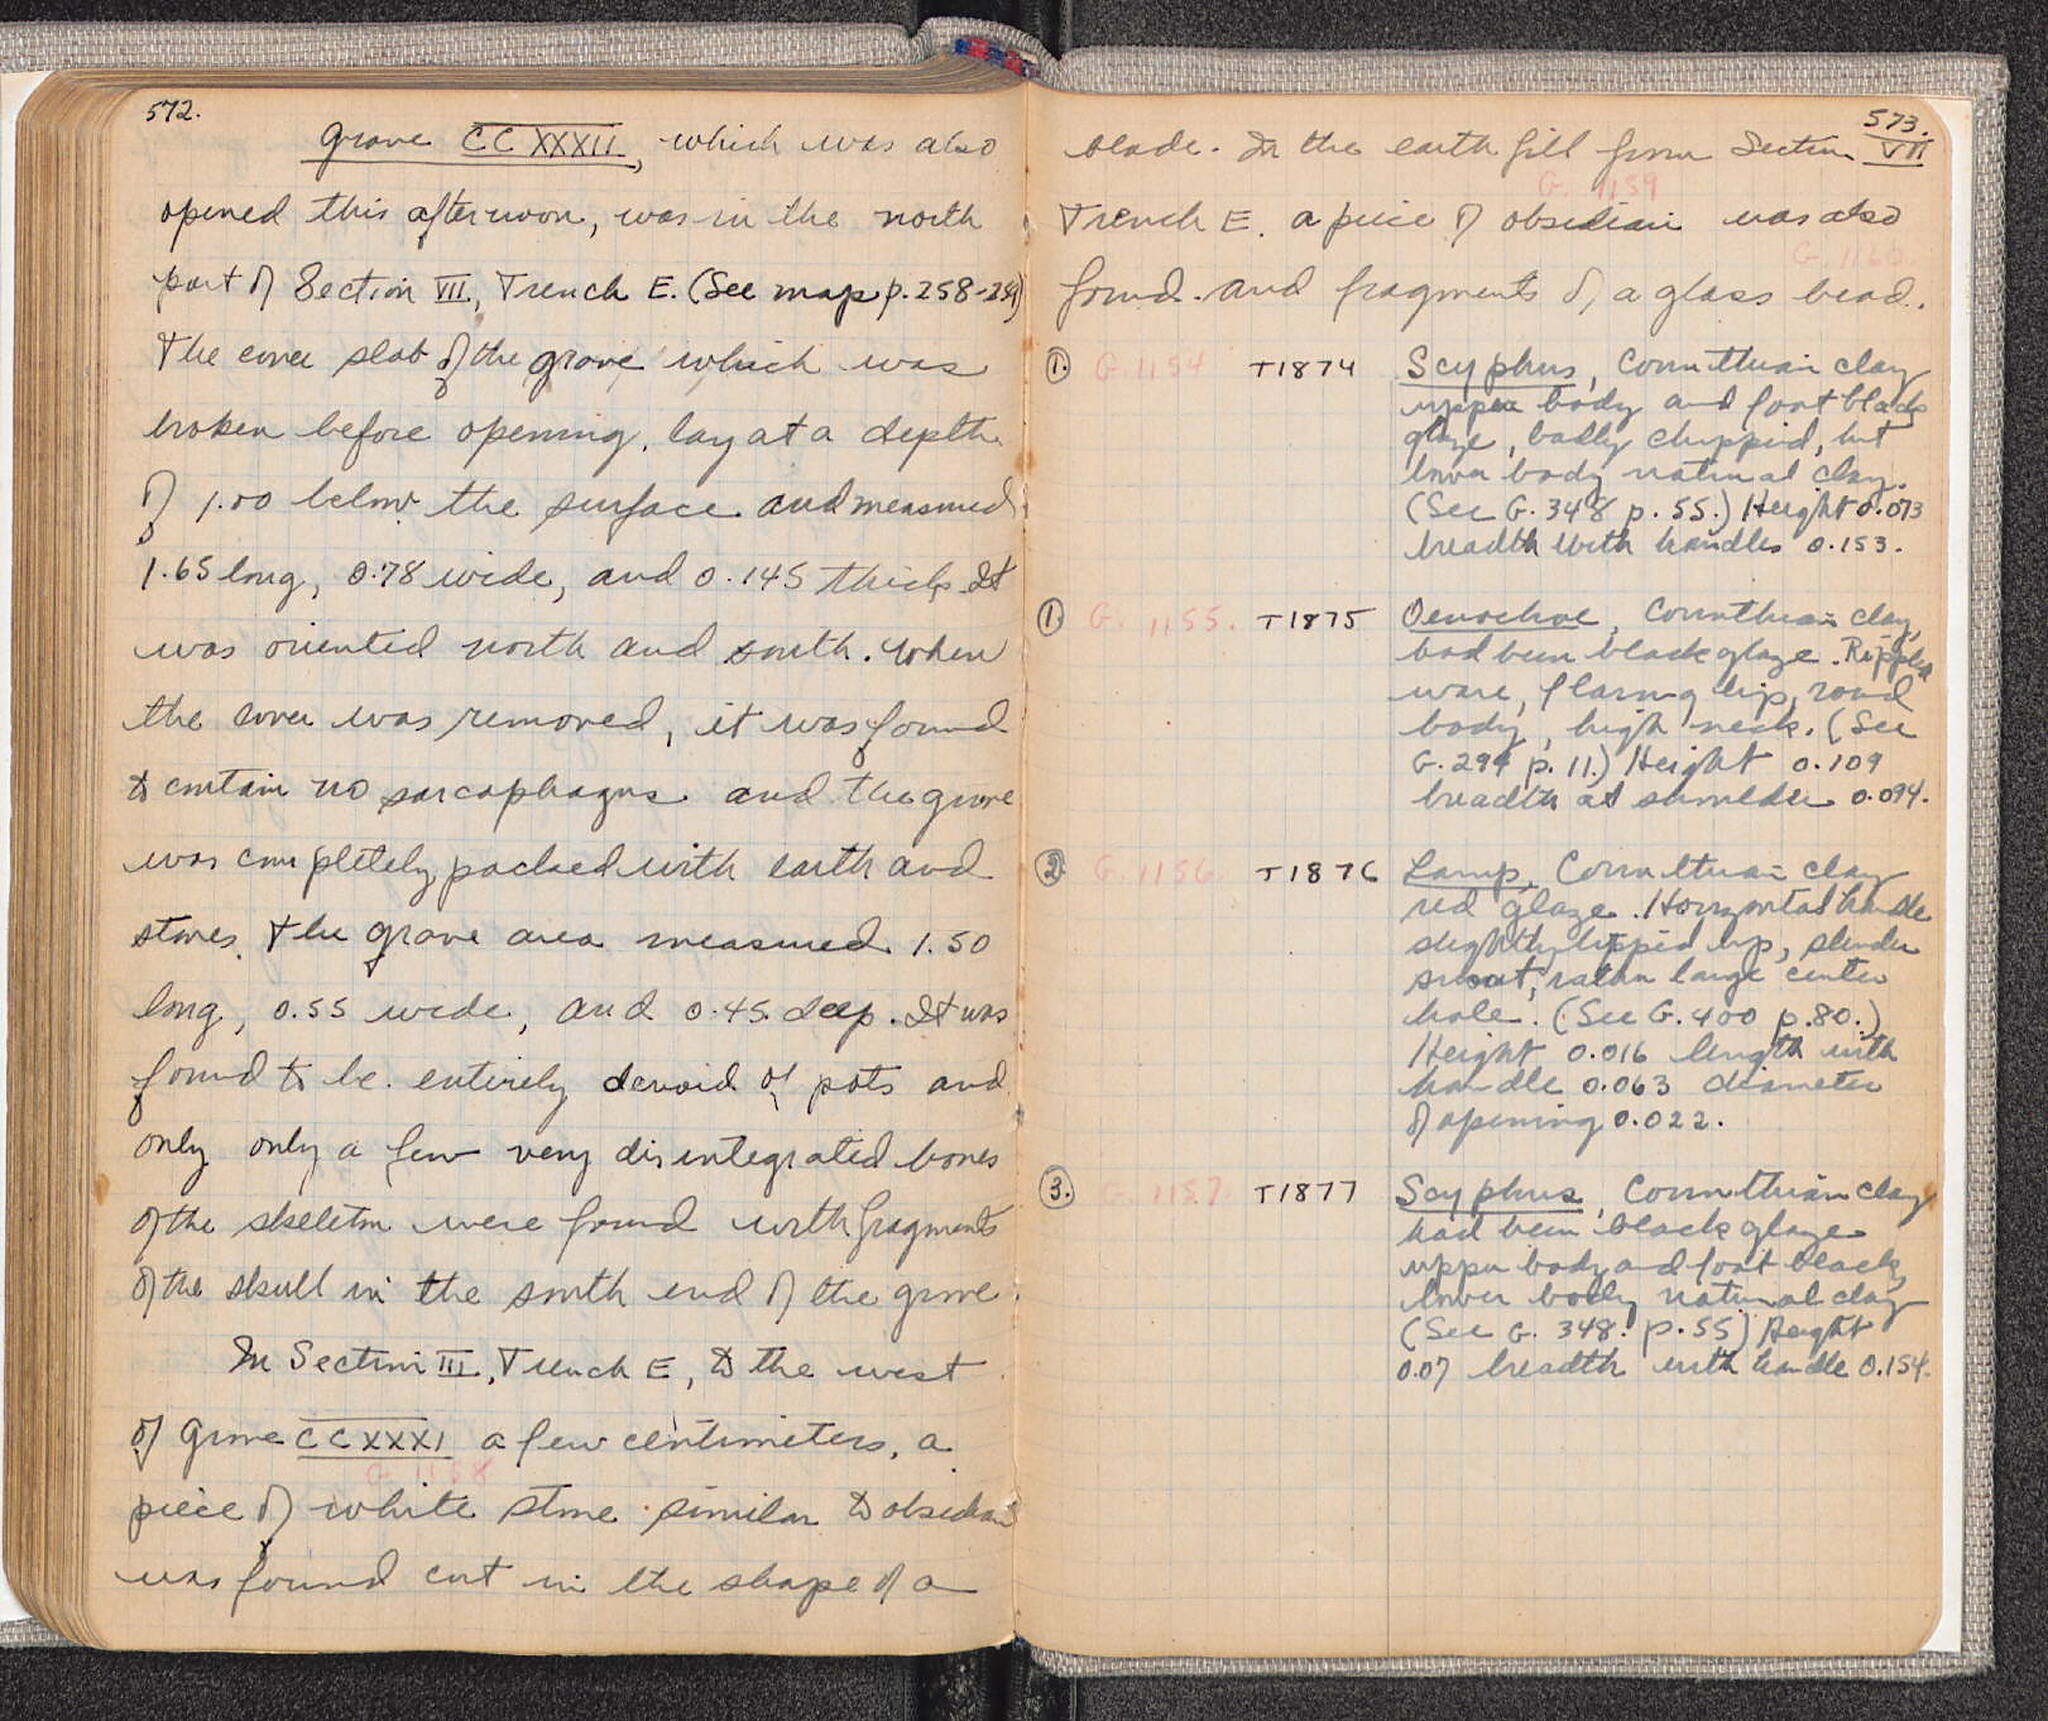 572.
Grave CCXXXII, which was also
opened this afternoon, was in the north
part of Section VII, Trench E. (See map p. 258-259)
The cover slab of the grave which was
broken before opening, lay at a depth
of 1.00 below the surface and measured
1.65 long, 0.78 wide, and 0.145 thick. It
was oriented north and south. When
the cover was removed, it was found
to contain no sarcophagus and the grave
was completely packed with earth and
stones. The grave area measured 1.50
long, 0.55 wide, and 0.45 deep. It was
found to be entirely devoid of pots and
only only a few very disintegrated bones
of the skeleton were found with fragments
of the skull in the south end of the grave.
In Section III, Trench E, to the west
of Grave CCXXXI a few centimeters, a
G. 1158
piece of white stone similar to obsidian
was found cut in the shape of a
573.
blade. In the earth fill from Section VII
G. 1159
Trench E. a piece of obsidian was also
G. 1160.
found. and fragments of a glass bead.
1. G. 1154 T1874 Scyphus, Corinthian clay
upper body and foot black
glaze, badly chipped, but
lower body natural clay.
(See G. 348 p. 55.) Height 0.073
breadth with handles 0.153.
1. G. 1155. T1875 Oenochoe, Corinthian clay,
had been black glaze. Rippled
ware, flaring lip, round
body, high neck. (See
G. 299 p. 11.) Height 0.109
breadth at shoulder 0.094.
2. G. 1156. T1876 Lamp, Corinthian clay
red glaze. Horizontal handle
slightly lipped lip, slender
snout, rather large center
hole. (See G. 400 p. 80.)
Height 0.016 length with
handle 0.063 diameter
of opening 0.022.
3. G. 1157. T1877 Scyphus, Corinthian clay
had been black glaze
upper body and foot black,
lower body natural clay
(See G. 348. p. 55) Height
0.07 breadth with handle 0.154.